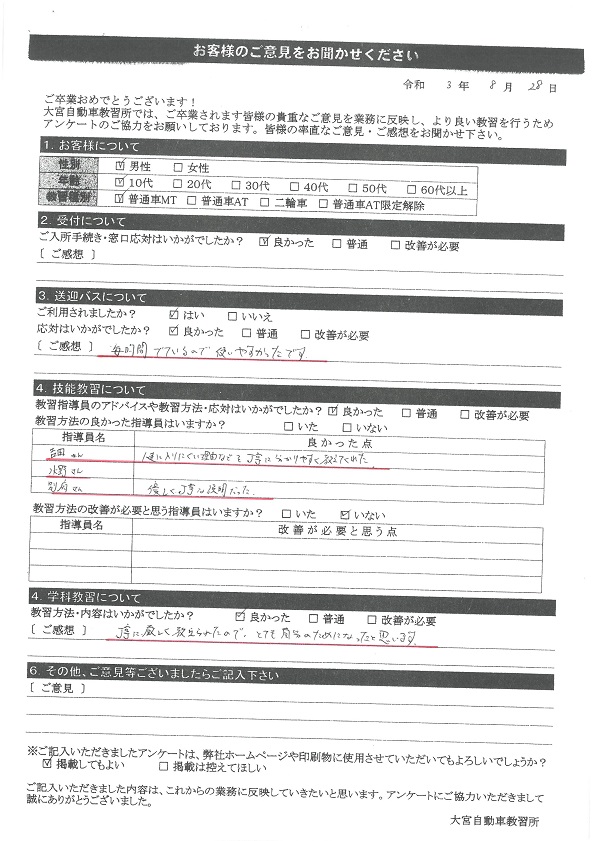 お客様のご意見をお聞かせください
令和 3 年 8 月 28 日
ご卒業おめでとうございます！
大宮自動車教習所では、ご卒業されます皆様の貴重なご意見を業務に反映し、より良い教習を行うため
アンケートのご協力をお願いしております。皆様の率直なご意見・ご感想をお聞かせ下さい。
1. お客様について
性別 ☑ 男性 □ 女性
年齢 ☑ 10代 □ 20代 □ 30代 □ 40代 □ 50代 □ 60代以上
教習種別 ☑ 普通車MT □ 普通車AT □ 二輪車 □ 普通車AT限定解除
2. 受付について
ご入所手続き・窓口応対はいかがでしたか？ ☑ 良かった □ 普通 □ 改善が必要
[ ご感想 ]
3. 送迎バスについて
ご利用されましたか？ ☑ はい □ いいえ
応対はいかがでしたか？ ☑ 良かった □ 普通 □ 改善が必要
[ ご感想 ] 毎時間でているので使いやすかったです
4. 技能教習について
教習指導員のアドバイスや教習方法・応対はいかがでしたか？ ☑ 良かった □ 普通 □ 改善が必要
教習方法の良かった指導員はいますか？ □ いた □ いない
指導員名 良かった点
吉田さん にくい理由なども丁寧に分かりやすく教えてくれた
水野さん
別府さん 優しく丁寧な説明だった
教習方法の改善が必要と思う指導員はいますか？ □ いた ☑ いない
指導員名 改善が必要と思う点
4. 学科教習について
教習方法・内容はいかがでしたか？ ☑ 良かった □ 普通 □ 改善が必要
[ ご感想 ] 丁寧に厳しく教えられたので、とても自分のためになったと思います。
6. その他、ご意見等ございましたらご記入下さい
[ ご意見 ]
※ご記入いただきましたアンケートは、弊社ホームページや印刷物に使用させていただいてもよろしいでしょうか？
☑ 掲載してもよい □ 掲載は控えてほしい
ご記入いただきました内容は、これからの業務に反映していきたいと思います。アンケートにご協力いただきまして
誠にありがとうございました。
大宮自動車教習所